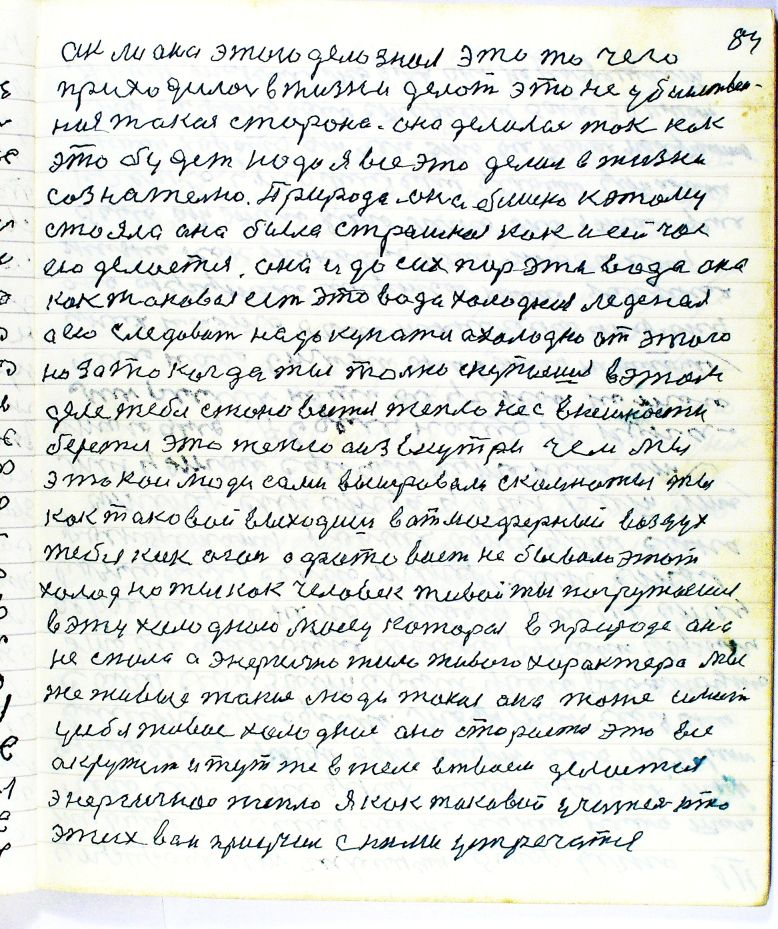 84
ак ли она этого дело знал это то чего
приходилос в жизни делот это не убиствен-
ная такая сторона. она делалас так как
это будет надо я все это делал в жизни
сознателно. Природа она близко к этому
стояла она была страшная как и сейчас
ею делается. она и до сих пор эта вода она
как таковая ест это вода холодная леденая
а ею следоват надо купатся а холодно от этого
но зато когда ты толко скупаешся в этом
деле тебя становится тепло не с внешности
берется это тепло а из внутри чем мы
этакои люди сами выигровали с комнаты ты
как таковой выходиш в атмосферный воздух
тебя как огон офатовает не бывало этот
холод но ты как человек живой ты погружаешся
в эту холодною массу которая в природе она
не спала а энергично жила живого характера мы
же живые такие люди такая она тоже имеит
у себя живое холодное оно старается это все
окружит и тут же в теле в твоем делается
энергичное тепло я как таковой учител
этих вои приучил с ними устречатся